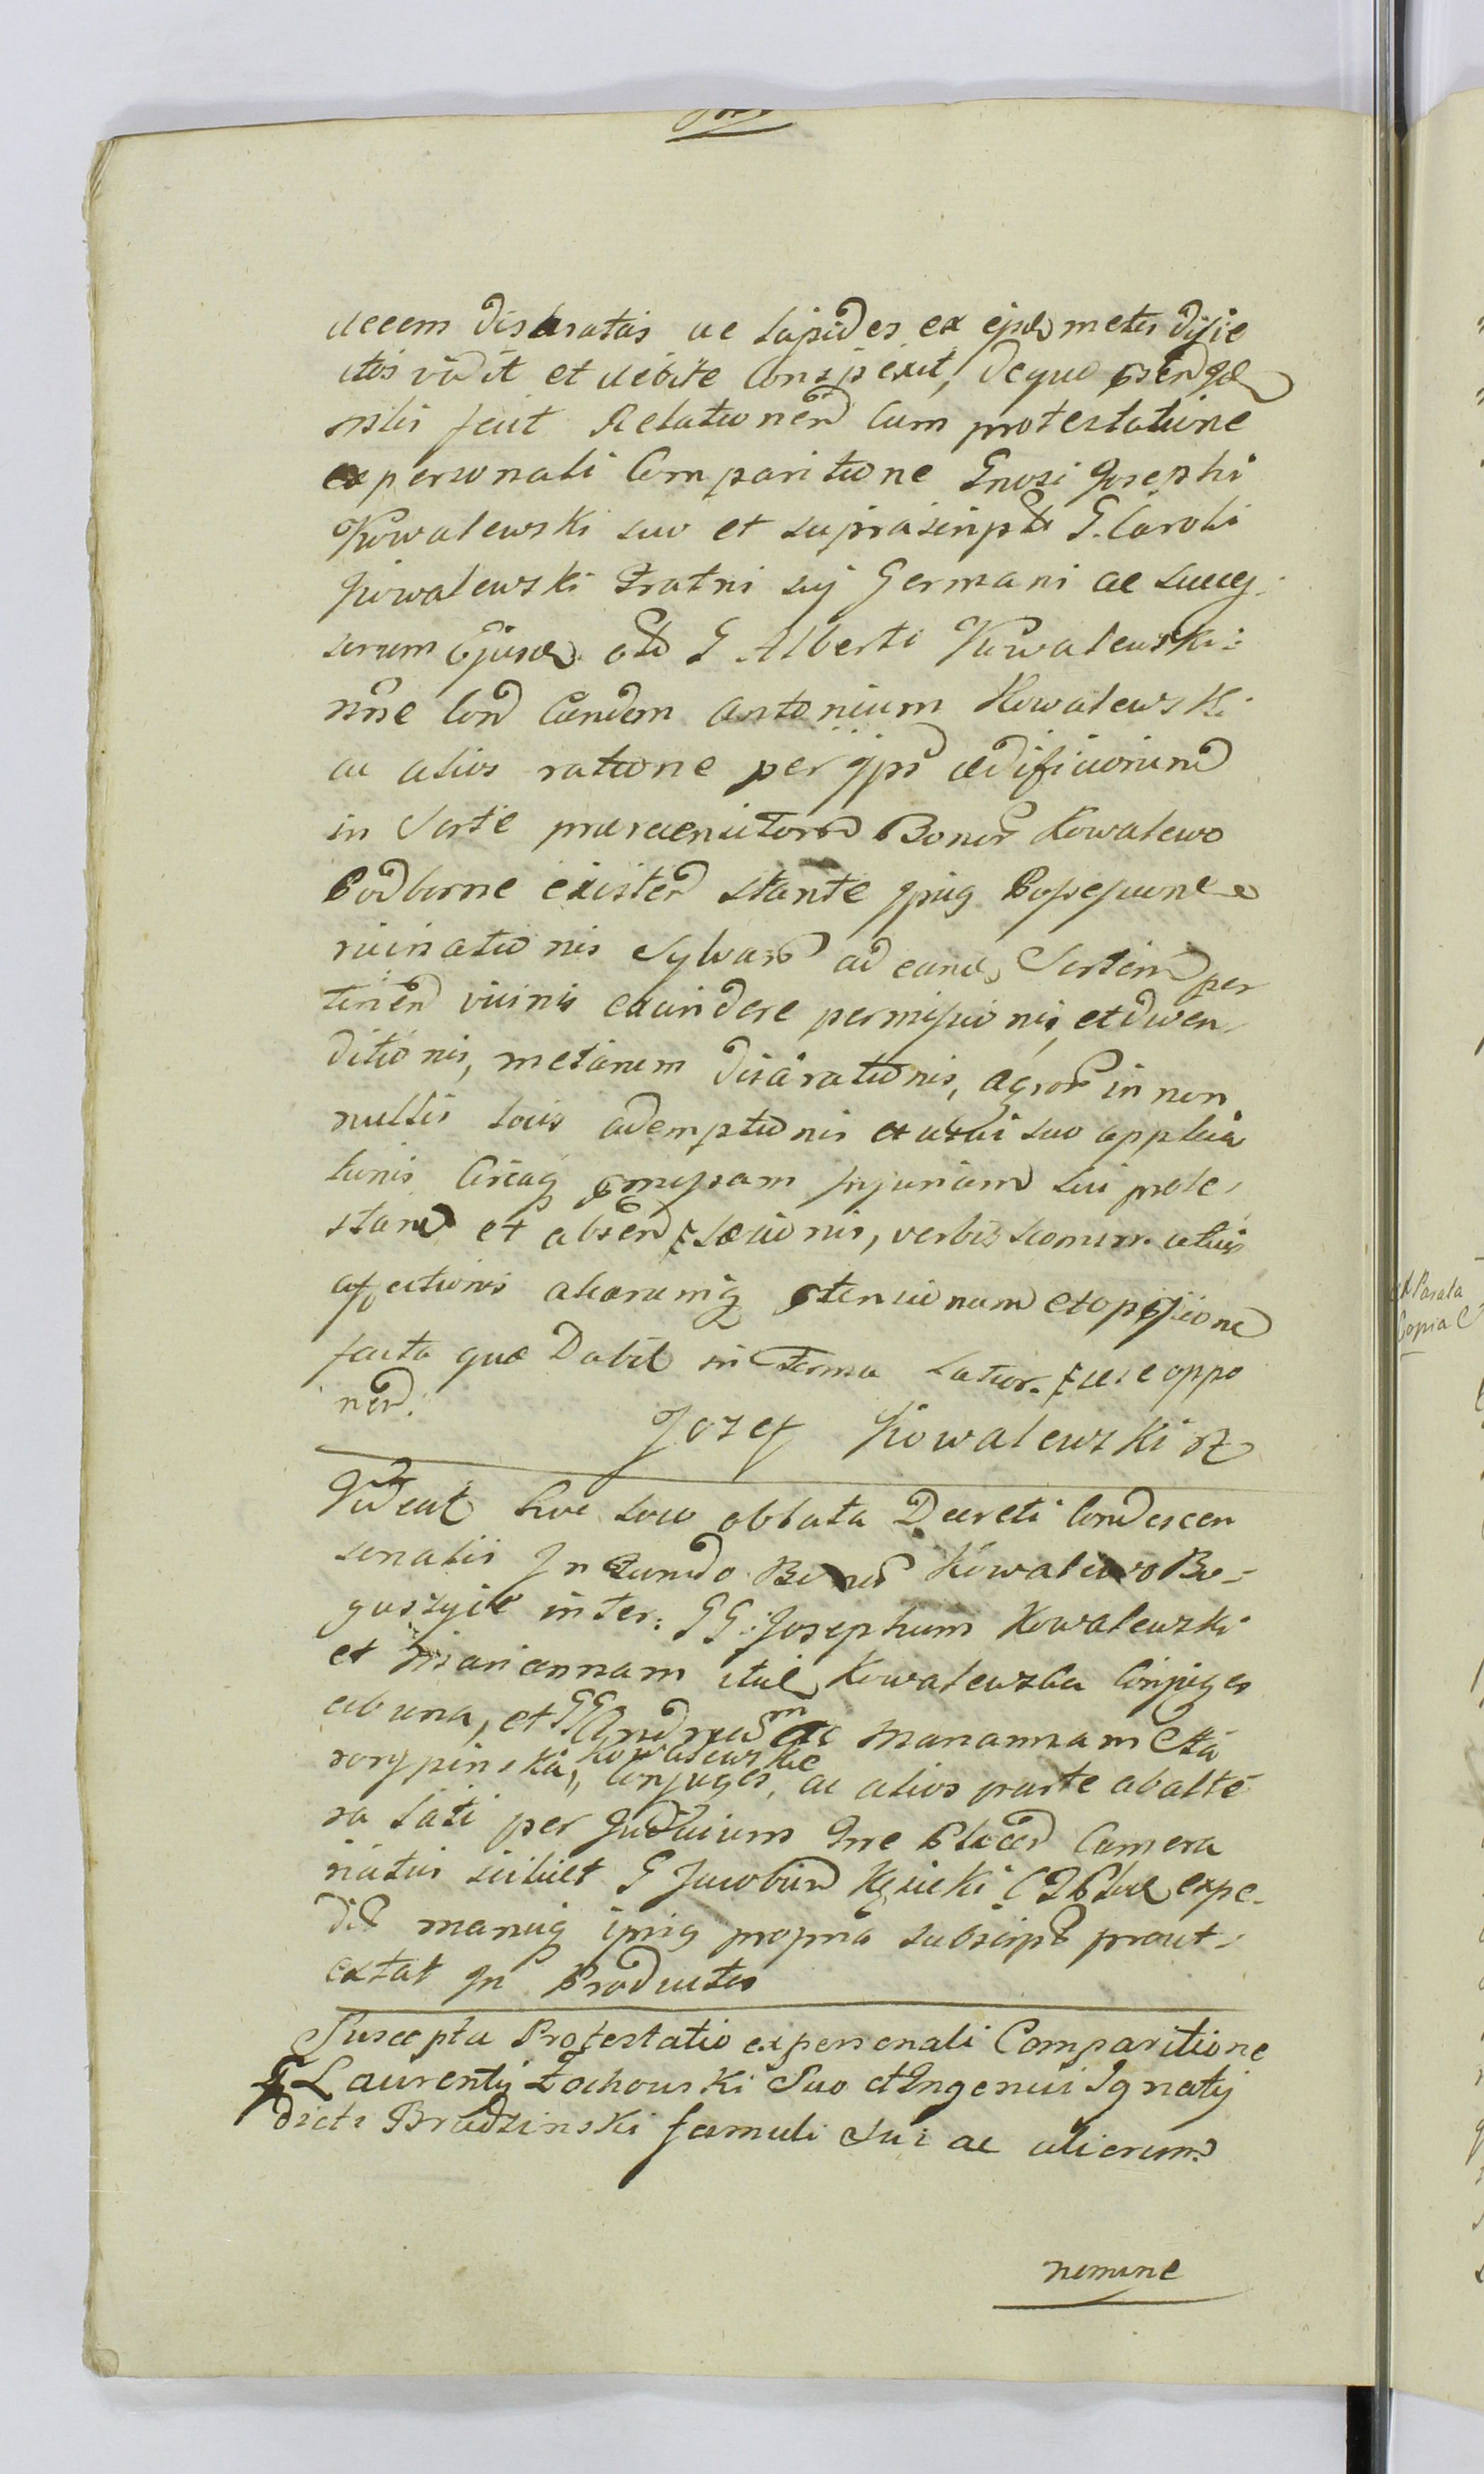 decem disaratas ac lapides ex ejusd metis disje
ctos vidit et debite conspexit, deque
fecit Relationem cum protestatione
ex personali Comparitione Gnosi Josephi
Kowalewski suo et suprascripti G. Caroli
Kowalewski Fratris sui Germani ac succes
sorum Ejusd olim G Alberti Kowalewski
nne cond eundem Antonium Kowalewski
ac alios ratione per ipsos ædificiorum
in Sorte præventitorum Bonor Kowalewo
Podborne existen stante ipsius Possessione
ruinationis Sylvar ad eand Sortem per
tinen vicinis excindere permissionis, et diven
ditionis, metarum disarationis, agror in non
nullis locis ademptionis et usui suo applica
tionis Circaq omissam Injuriam sui prote
stan et absen læsionis, verbis scomm. alias
affectionis aliarumq etoppressione
facta quæ Dabit in Termo Latior.
nen.
Jozef Kowalewski
Videat hoc loco oblata Decreti Condescen
sorialis In Fundo Bonor Kowalewo Bo-
guszyce inter: GG: Josephum Kowalewski
et Mariannam Kowalewska Conjuges
ab una, et GG Andream ac Mariannam Ska
rorypinska, Kowalewskie Conjuges, ac alios parte ab alte
ra lati per Judicium Camera
riatus scilicet G Jacobum expe
di manuq ipsius propria subscript prout
extat In Productis
Suscepta Protestatio ex personali Comparitione
G Laurentij Żochowski Suo et Ingenui Ignatij
dicti Brudzinski famuli sui ac aliorum
nomine